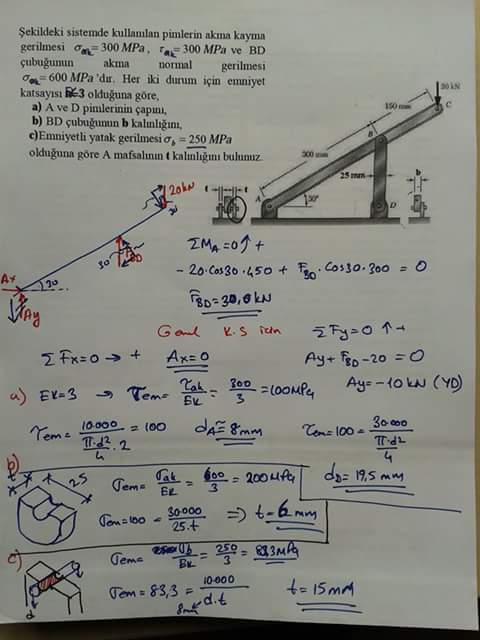 Şekildeki sistemde kullanılan pimlerin akma kayma
gerilmesi σak= 300 MPa, τak= 300 MPa ve BD
çubuğunun akma normal gerilmesi
σak= 600 MPa'dır. Her iki durum için emniyet
katsayısı K=3 olduğuna göre,
a) A ve D pimlerinin çapını,
b) BD çubuğunun b kalınlığını,
c)Emniyetli yatak gerilmesi σb = 250 MPa
olduğuna göre A mafsalının t kalınlığını bulunuz.
20 kN
C
150 mm
B
300 mm
25 mm
b
t t
A
30°
D
20kN
30
FBD
30
Ax
30
Ay
ΣMA=0 +
-20.cos30.450 + FBD.cos30.300 = 0
FBD=30,0 kN
Genel K.S için
ΣFy=0 ↑+
ΣFx=0 → +
Ax=0
Ay+FBD-20=0
Ay=-10kN (YD)
a) EK=3 → τem= τak/EK = 300/3 =100MPa
τem= 10.000/(π.d²/4 . 2) = 100
dA≅8mm
τem=100= 30.000/(π.d²/4)
dD=19,5 mm
b)
t
25
σem= σak/EK = 600/3 = 200MPa
σem=100= 30.000/25.t ⇒ t=6mm
c)
d
σem= σb/EK = 250/3 = 83,3MPa
σem=83,3= 10.000/d.t
8mm
t=15mm